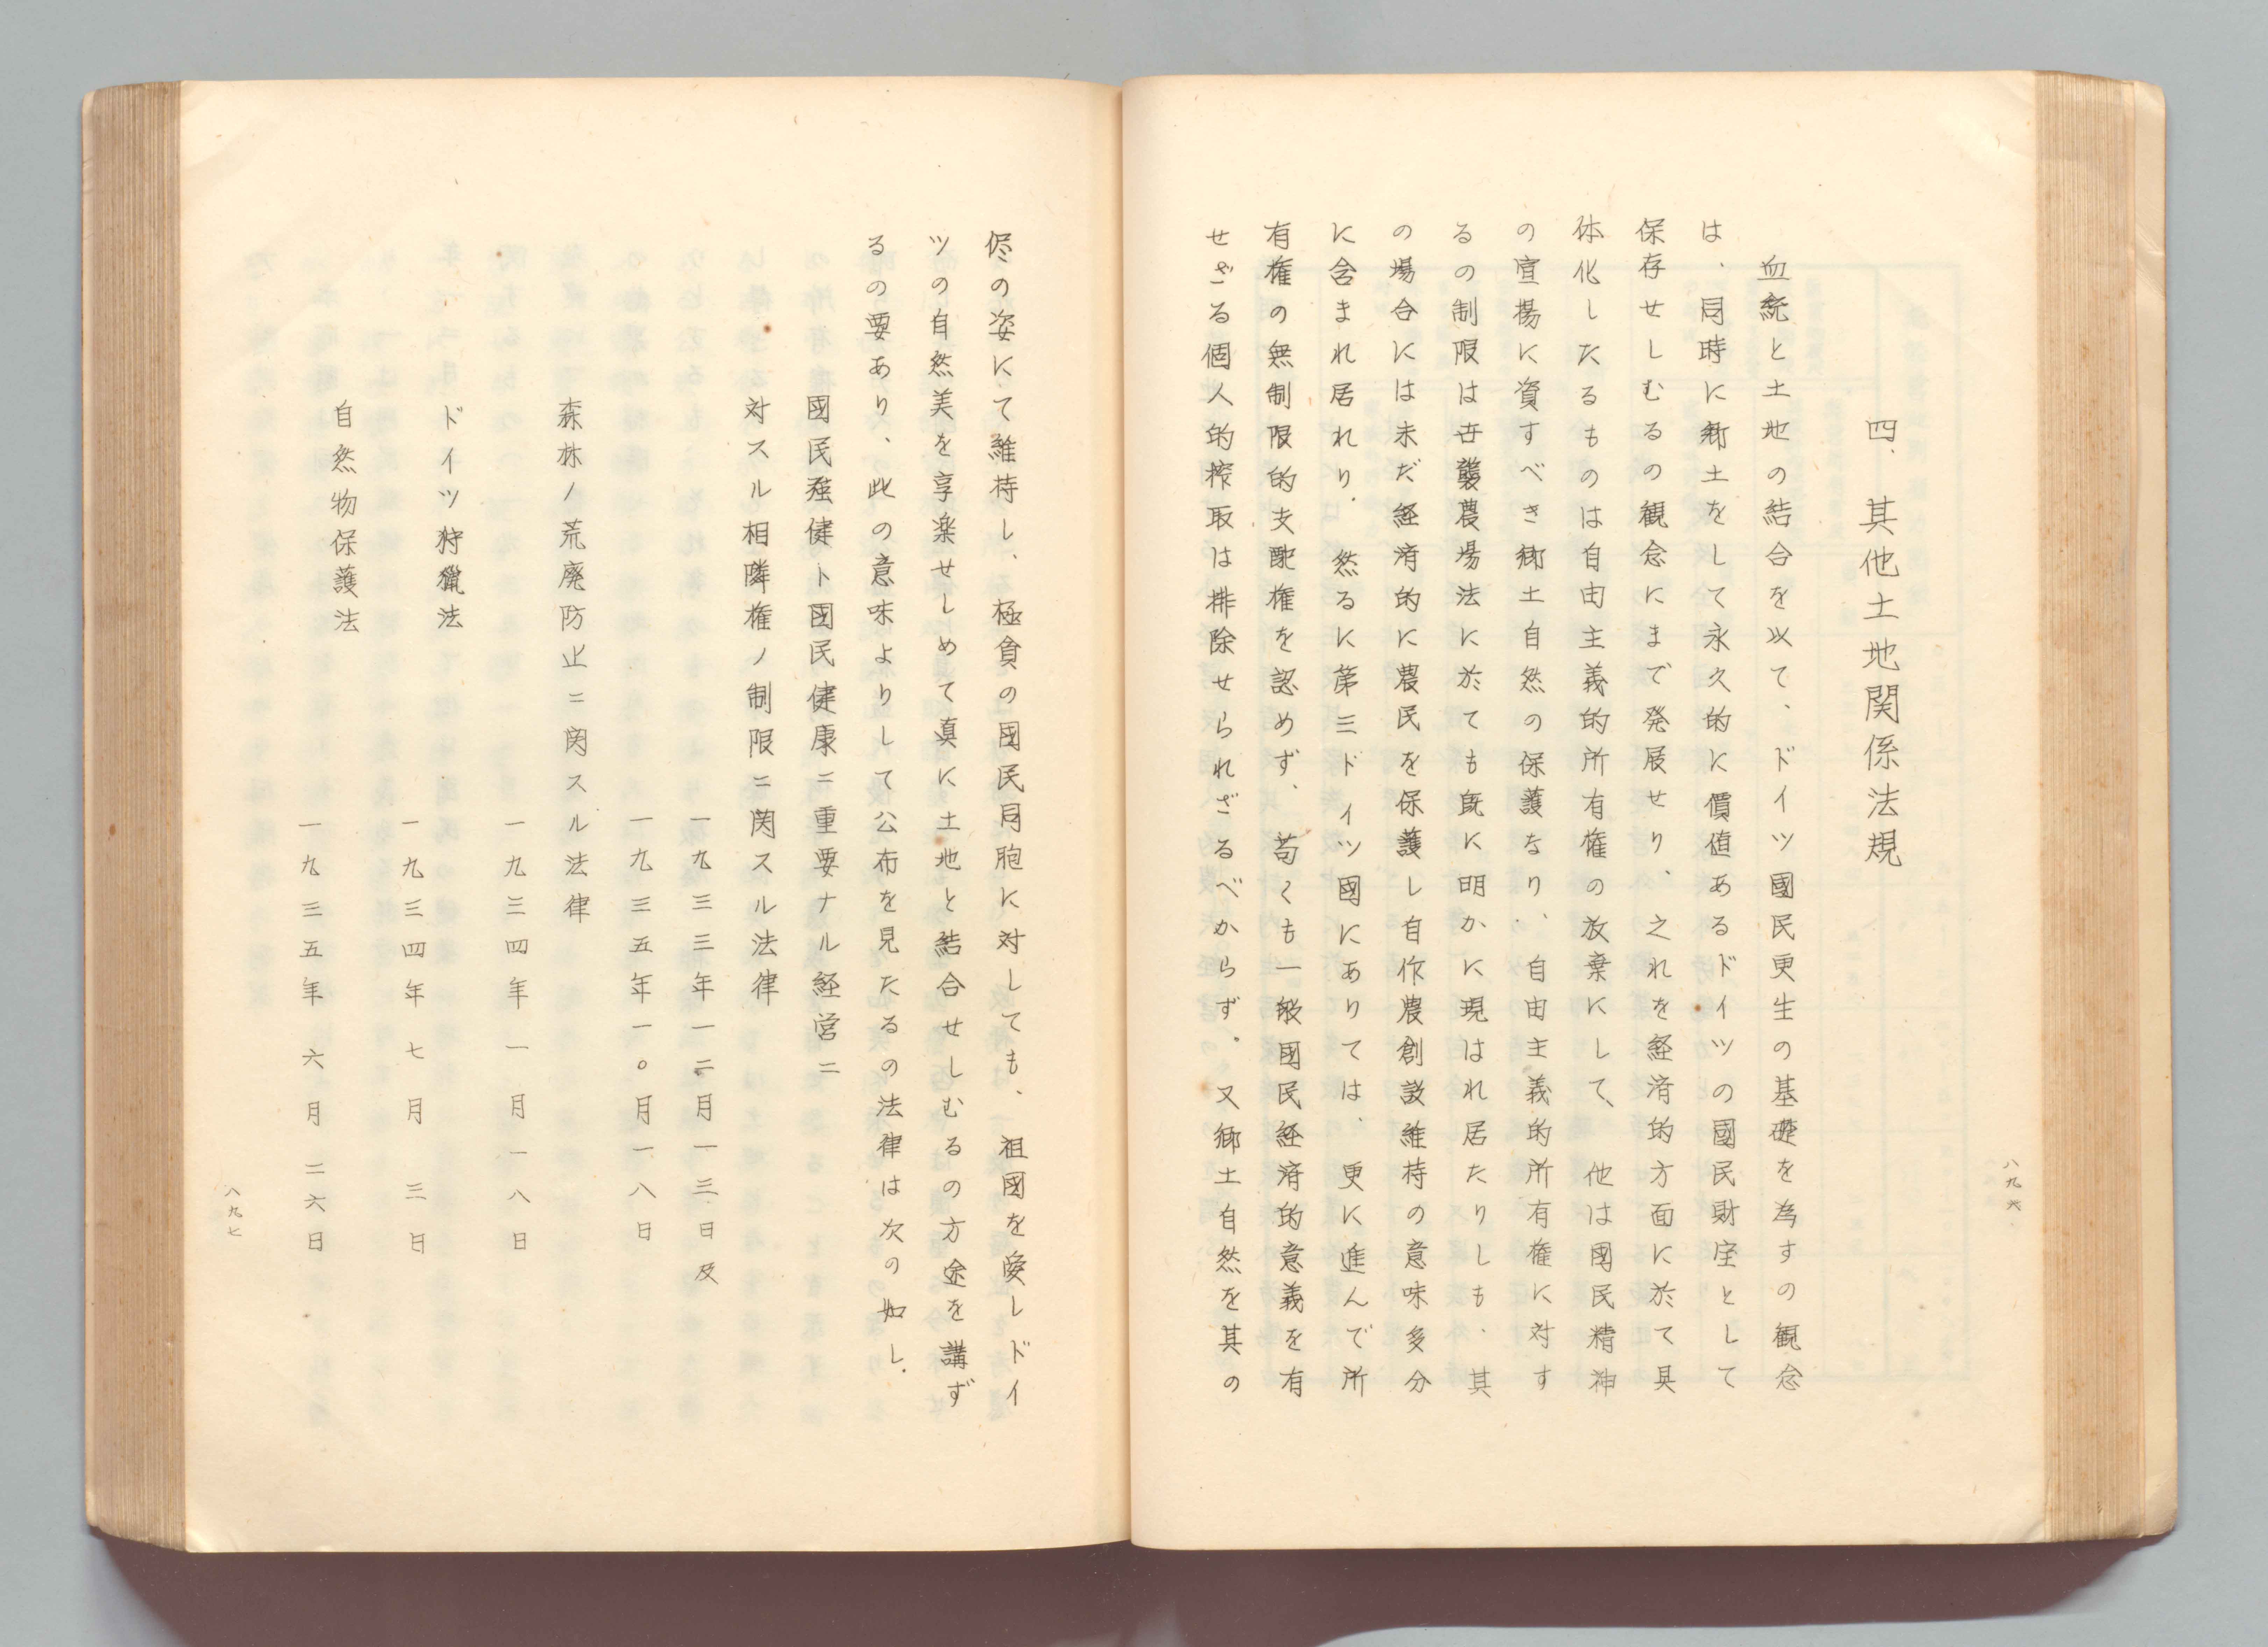 四、其他土地関係法規
血統と土地の結合を以て、ドイツ國民更生の基礎を為すの観念
は、同時に郷土をして永久的に價値あるドイツの國民財宝として
保存せしむるの観念にまで発展せり、之れを経済的方面に於て具
体化したるものは自由主義的所有権の放棄にして、他は國民精神
の宣揚に資すべき郷土自然の保護なり、自由主義的所有権に対す
るの制限は世襲農場法に於ても既に明かに現はれ居たりしも、其
の場合には未だ経済的に農民を保護し自作農創設維持の意味多分
に含まれ居れり．然るに第三ドイツ國にありては、更に進んで所
有権の無制限的支配権を認めず、苟くも一般國民経済的意義を有
せざる個人的搾取は排除せられざるべからず．又郷土自然を其の
八九六
侭の姿にて維持し、極貧の國民同胞に対しても、祖國を愛しドイ
ツの自然美を享楽せしめて真に土地と結合せしむるの方途を講ず
るの要あり、此の意味よりして公布を見たるの法律は次の如し．
國民強健ト國民健康ニ重要ナル経営ニ
対スル相隣権ノ制限ニ関スル法律
一九三三年一二月一三日及
一九三五年一〇月一八日
森林ノ荒廃防止ニ関スル法律
一九三四年一月一八日
ドイツ狩獵法
一九三四年七月三日
自然物保護法
一九三五年六月二六日
八九七